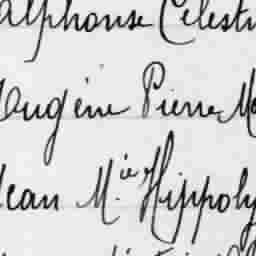 Alphonse Célest
Eugène Pierre Ma
Jean M.ie Hippoly